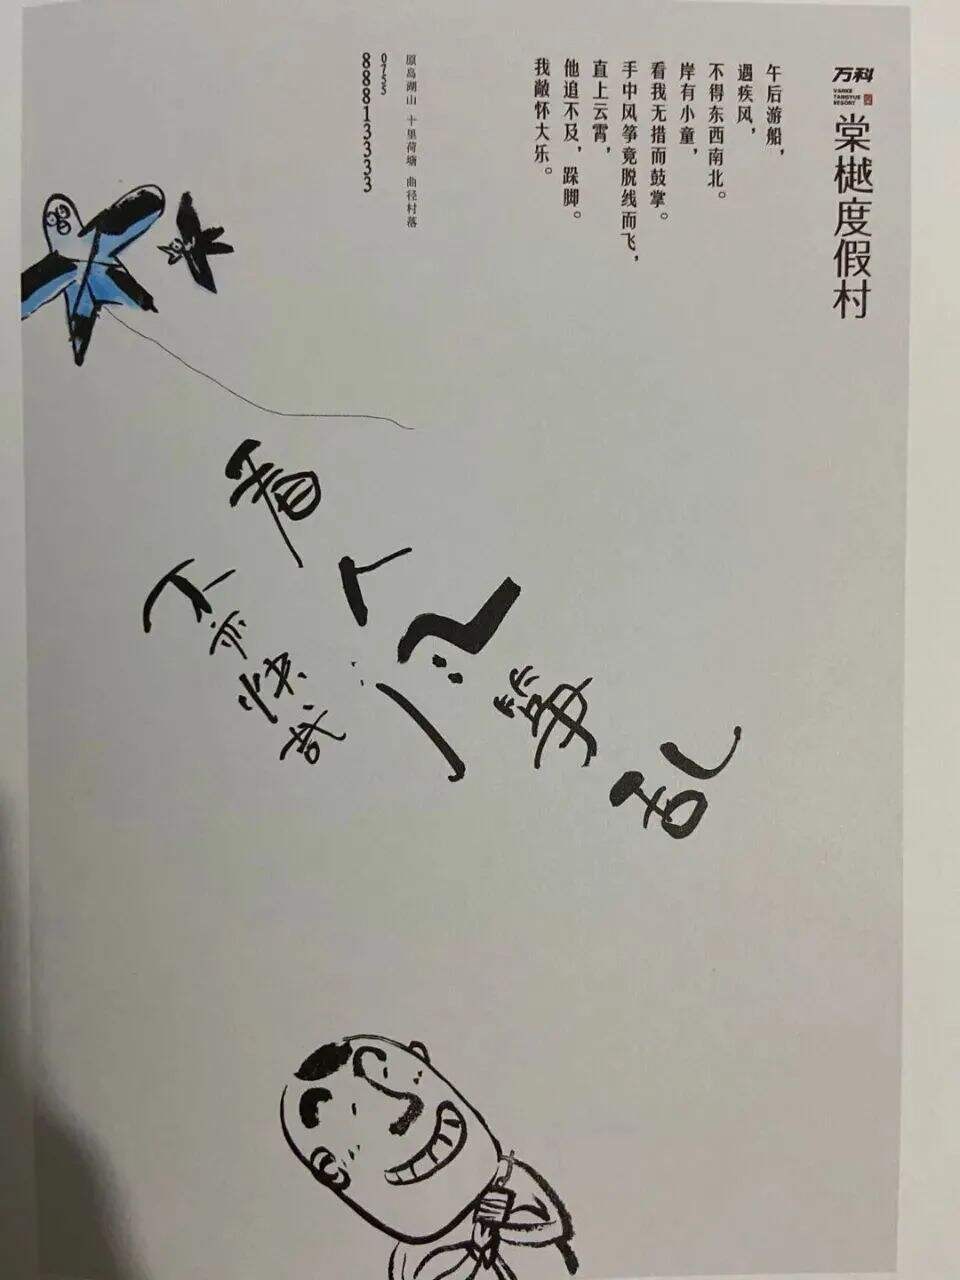 万科
VANKE
TANGYUE
RESORT
棠樾度假村
午后游船，
遇疾风，
不得东西南北。
岸有小童，
看我无措而鼓掌。
手中风筝竟脱线而飞，
直上云霄，
他追不及，跺脚。
我敞怀大乐。
原岛湖山 十里荷塘 曲径村落
0755
88813333
看人风筝乱
不亦快哉